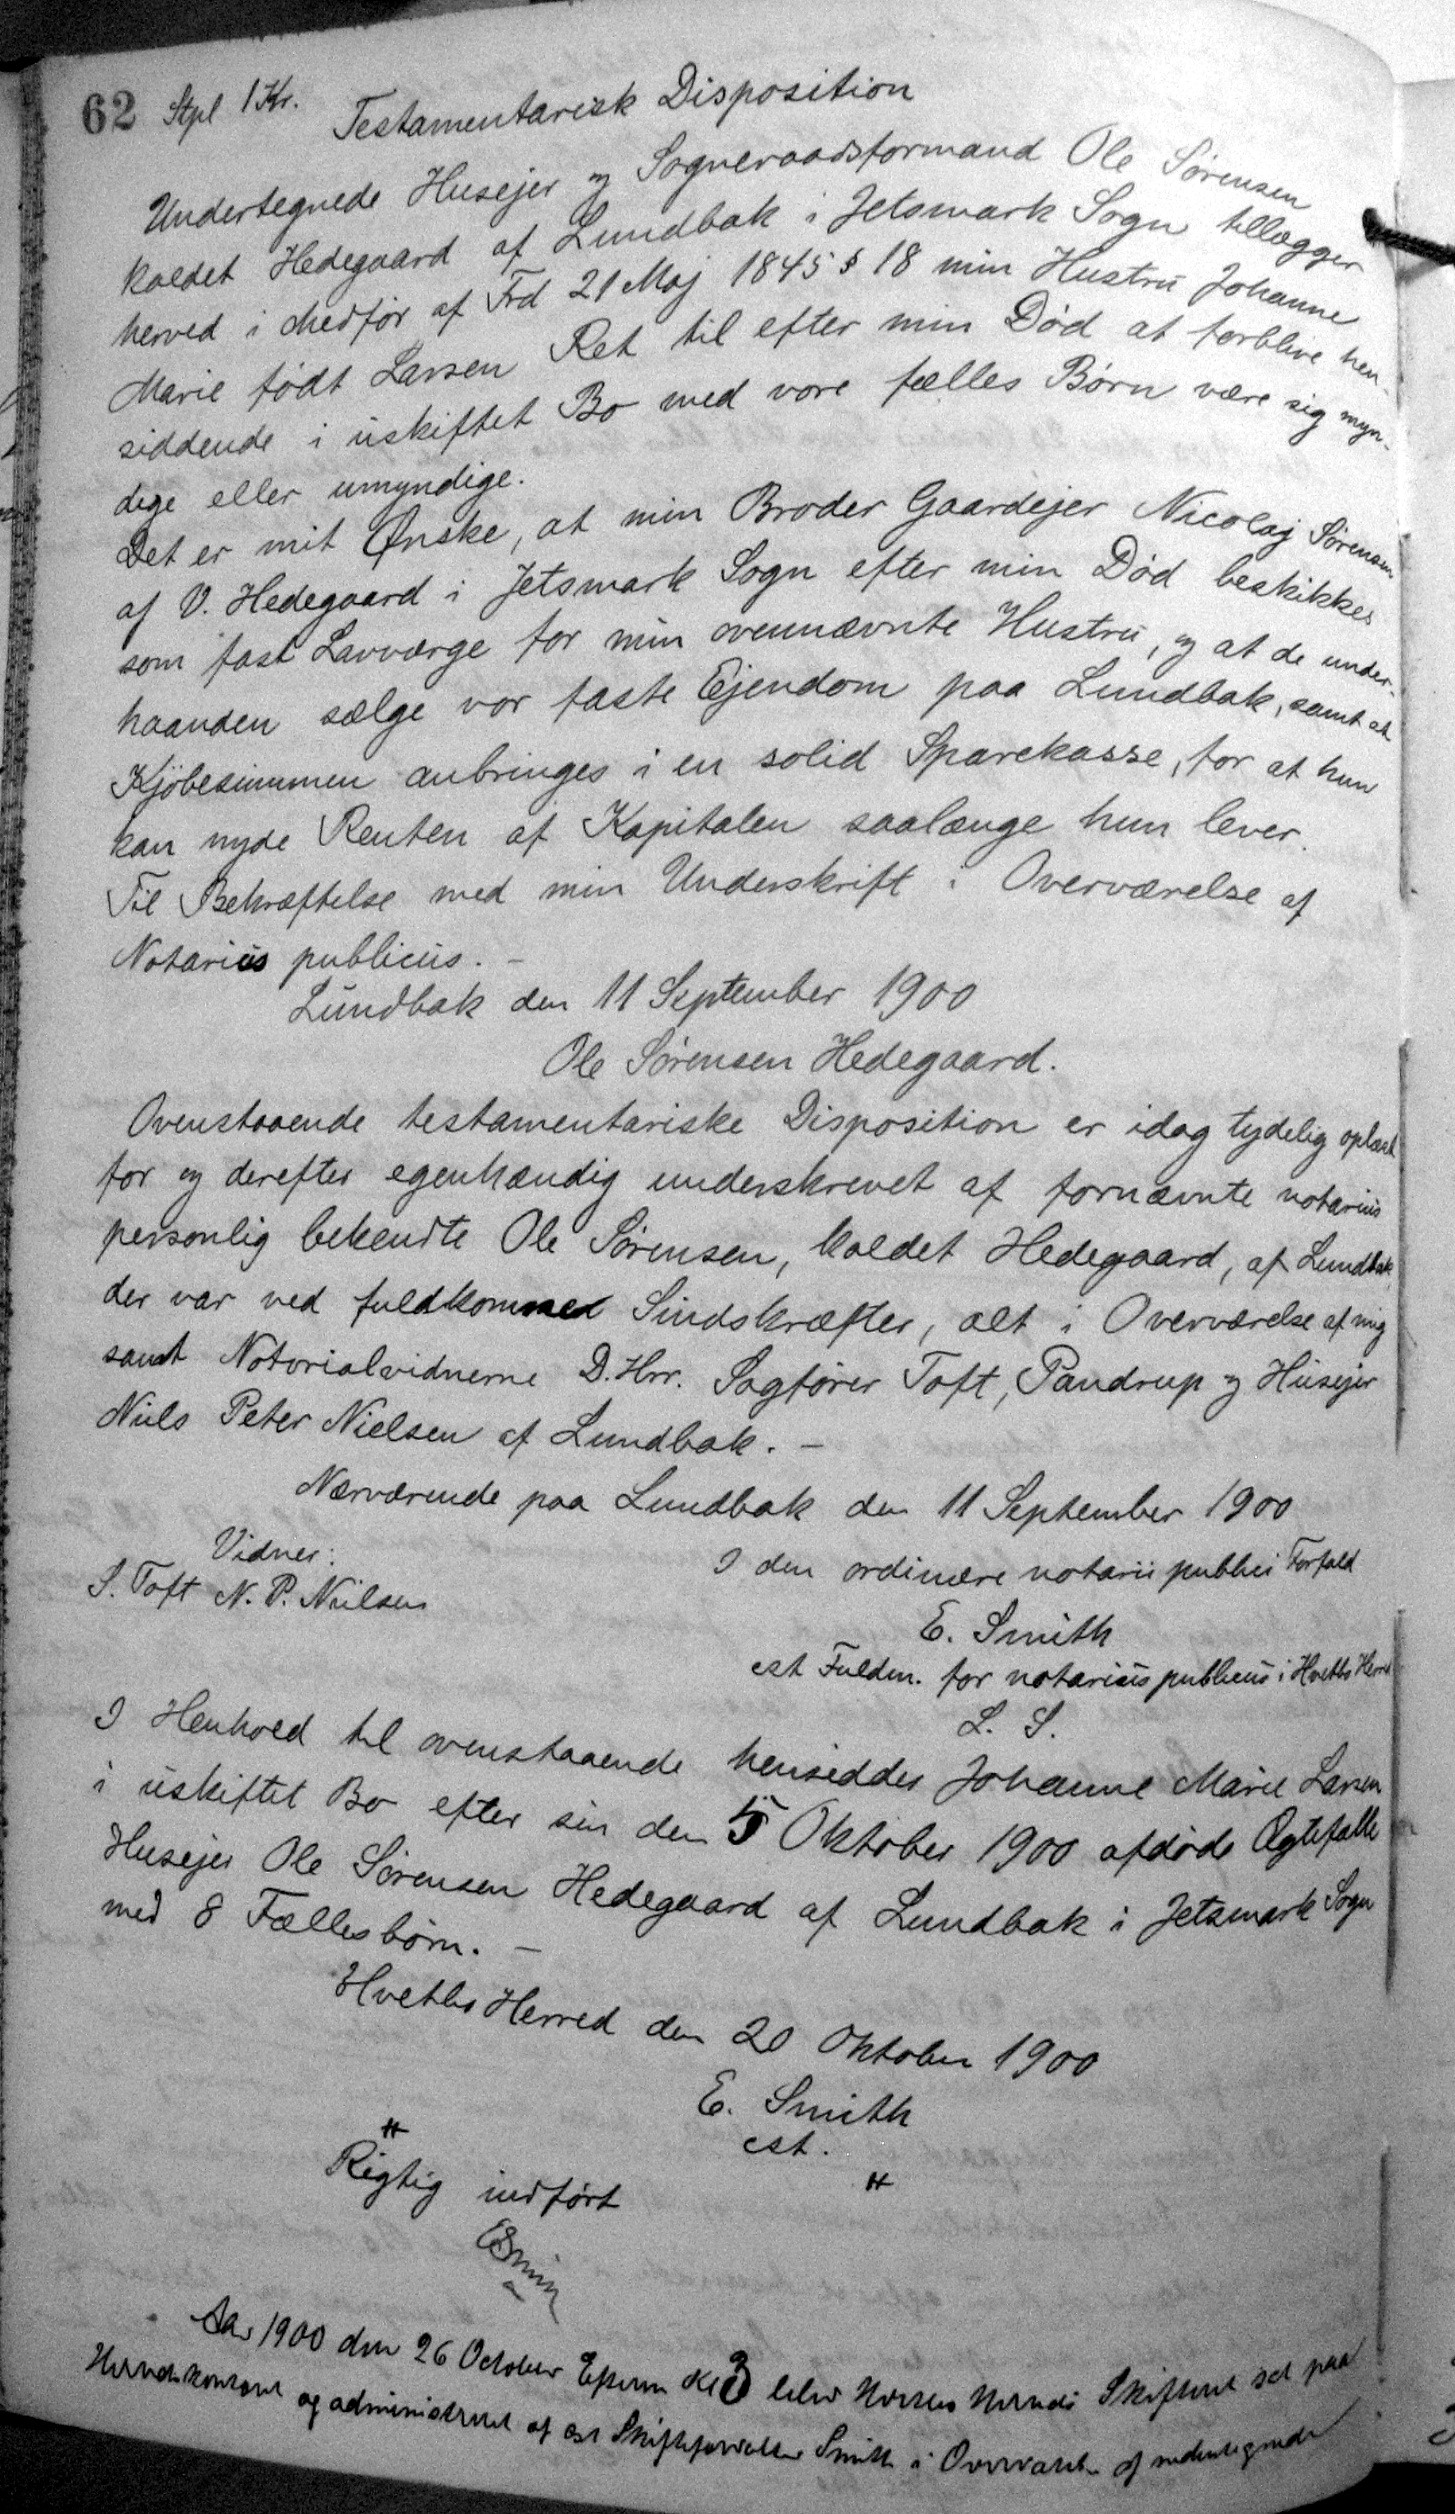 62 Stpl 1 Kr. Testamentarisk Disposition
Undertegnede Husejer og Sogneraadsformand Ole Sørensen
kaldet Hedegaard af Lundbak i Jetsmark Sogn tillægger
herved i Medfør af Frd 21 Maj 1845 § 18 min Hustru Johanne
Marie født Larsen Ret til efter min Død at forblive hen-
siddende i uskiftet Bo med vore fælles Børn være sig myn-
dige eller umyndige.
Det er mit Ønske, at min Broder Gaardejer Nicolaj Sørensen
af V. Hedegaard i Jetsmark Sogn efter min Død beskikkes
som fast Lavværge for min ovennævnte Hustru, og at de under-
haanden sælge vor faste Ejendom paa Lundbak, samt at
Kjøbesummen anbringes i en solid Sparekasse, for at hun
kan nyde Renten af Kapitalen saalænge hun lever.
Til Bekræftelse med min Underskrift i Overværelse af
Notarius publicus. -
Lundbak den 11 September 1900
Ole Sørensen Hedegaard.
Ovenstaaende testamentariske Disposition er idag tydelig oplæst
for og derefter egenhændig underskrevet af fornævnte notarius
personlig bekendte Ole Sørensen, kaldet Hedegaard, af Lundbak,
der var ved fuldkommen Sindskræfter, alt i Overværelse af mig
samt Notarialvidnerne D.Hrr. Sagfører Toft, Pandrup og Husejer
Niels Peter Nielsen af Lundbak. -
Nærværende paa Lundbak den 11 September 1900
Vidner:
I den ordinære notarii publici Forfald
S. Toft N. P. Nielsen
E. Smith
cst Fuldm. for notarius publicus i Hvetbo Herred
L. S.
I Henhold til ovenstaaende hensidder Johanne Marie Larsen
i uskiftet Bo efter sin den 5 Oktober 1900 afdøde Ægtefælle
Husejer Ole Sørensen Hedegaard af Lundbak i Jetsmark Sogn
med 8 Fællesbørn. -
Hvetbo Herred den 20 Oktober 1900
E. Smith
cst.
Rigtig indført
ESmith
Aar 1900 den 26 October Efterm Kl 3 blev Hvetbo Herreds Skifteret sat paa
Herredskontoret og administreret af cst Skifteforvalter Smith i Overværelse af undertegnede